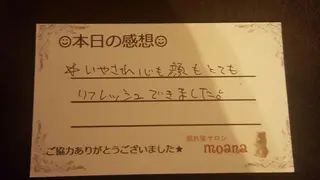 ☺本日の感想☺
いやされ心も顔もとても
リフレッシュできました。
隠れ家サロン
moana
ご協力ありがとうございました★